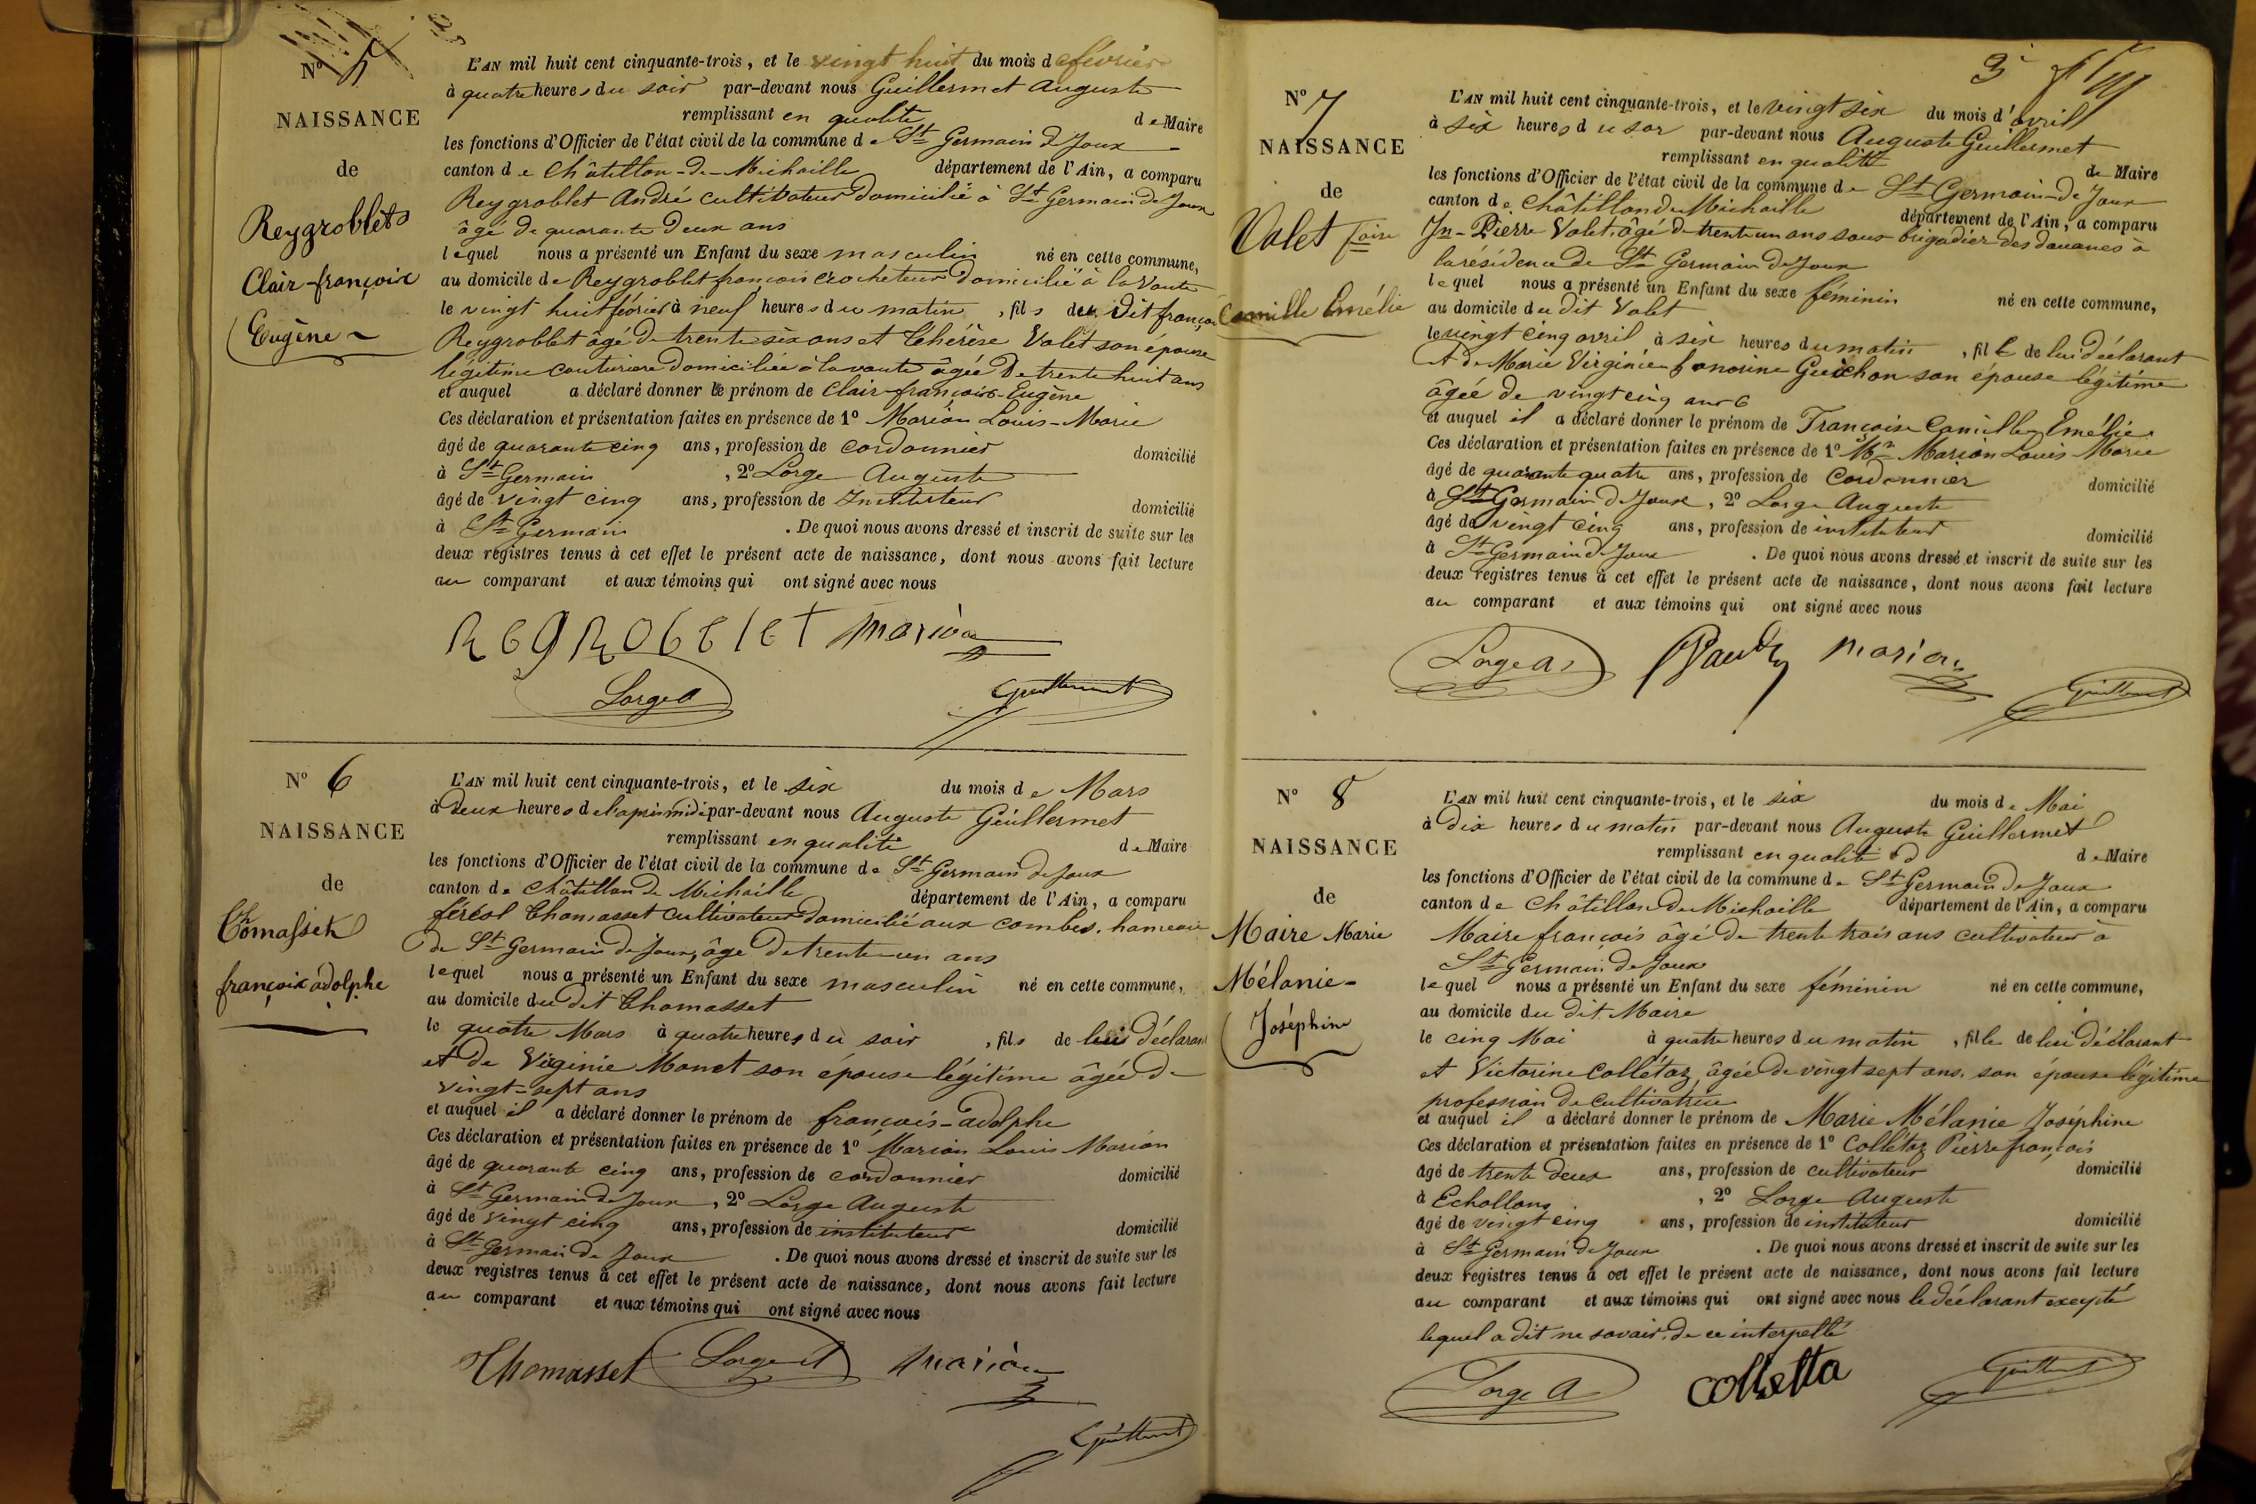 Nº 5
NAISSANCE
de
Reygroblet
Clair-françois
Eugène
L'AN mil huit cent cinquante-trois, et le vingt huit du mois de février
à quatre heures du soir par-devant nous Guillermet Auguste
remplissant en qualité de Maire
les fonctions d'Officier de l'état civil de la commune de St Germain de Joux
canton de Châtillon-de-Michaille département de l'Ain, a comparu
Reygroblet André cultivateur domicilié à St Germain de Joux
âgé de quarante deux ans
lequel nous a présenté un Enfant du sexe masculin né en cette commune,
au domicile de Reygroblet françois crocheteur domicilié à la Voute
le vingt huit février à neuf heures du matin, fils du dit françois
Reygroblet âgé de trente six ans et Thérèse Valet son épouse
légitime couturière domiciliée à la voute âgée de trente huit ans
et auquel a déclaré donner le prénom de Clair-françois-Eugène
Ces déclaration et présentation faites en présence de 1º Marion Louis-Marie
âgé de quarante cinq ans, profession de cordonnier domicilié
à St Germain, 2º Lorge Auguste
âgé de vingt cinq ans, profession de Instituteur domicilié
à St Germain. De quoi nous avons dressé et inscrit de suite sur les
deux registres tenus à cet effet le présent acte de naissance, dont nous avons fait lecture
au comparant et aux témoins qui ont signé avec nous
marion
Lorge A
Guillermet
Nº 6
NAISSANCE
de
Thomasset
françois adolphe
L'AN mil huit cent cinquante-trois, et le six du mois de Mars
à deux heures de l'après midi par-devant nous Auguste Guillermet
remplissant en qualité de Maire
les fonctions d'Officier de l'état civil de la commune de St Germain de Joux
canton de Châtillon de Michaille département de l'Ain, a comparu
féréol Thomasset cultivateur domicilié aux combes, hameau
de St Germain de Joux, âgé de trente un ans
lequel nous a présenté un Enfant du sexe masculin né en cette commune,
au domicile du dit Thomasset
le quatre Mars à quatre heures du soir, fils de lui déclarant
et de Virginie Monet son épouse légitime âgée de
vingt-sept ans
et auquel il a déclaré donner le prénom de françois-adolphe
Ces déclaration et présentation faites en présence de 1º Marion Louis Marion
âgé de quarante cinq ans, profession de cordonnier domicilié
à St Germain de Joux, 2º Lorge Auguste
âgé de vingt cinq ans, profession de instituteur domicilié
à St Germain de Joux. De quoi nous avons dressé et inscrit de suite sur les
deux registres tenus à cet effet le présent acte de naissance, dont nous avons fait lecture
au comparant et aux témoins qui ont signé avec nous
Thomasset Lorge A marion
Guillermet
3
Nº 7
NAISSANCE
de
Valet foise
Camille Emélie
L'AN mil huit cent cinquante-trois, et le vingt six du mois d'avril
à six heures du soir par-devant nous Auguste Guillermet
remplissant en qualité de Maire
les fonctions d'Officier de l'état civil de la commune de St Germain-de-Joux
canton de Châtillon de Michaille département de l'Ain, a comparu
Jn-Pierre Valet, âgé de trente un ans sous brigadier des douanes à
la résidence de St Germain de Joux
lequel nous a présenté un Enfant du sexe féminin né en cette commune,
au domicile du dit Valet
le vingt cinq avril à six heures du matin, fille de lui déclarant
et de Marie Virginie honorine Guichon son épouse légitime
âgée de vingt cinq ans
et auquel il a déclaré donner le prénom de Françoise Camille Emélie
Ces déclaration et présentation faites en présence de 1º Mr Marion Louis Marie
âgé de quarante quatre ans, profession de Cordonnier domicilié
à St Germain de Joux, 2º Lorge Auguste
âgé de vingt cinq ans, profession de instituteur domicilié
à St Germain de Joux. De quoi nous avons dressé et inscrit de suite sur les
deux registres tenus à cet effet le présent acte de naissance, dont nous avons fait lecture
au comparant et aux témoins qui ont signé avec nous
Lorge A marion
Guillermet
Nº 8
NAISSANCE
de
Maire Marie
Mélanie-
Joséphine
L'AN mil huit cent cinquante-trois, et le six du mois de Mai
à dix heures du matin par-devant nous Auguste Guillermet
remplissant en qualité de Maire
les fonctions d'Officier de l'état civil de la commune de St Germain de Joux
canton de Châtillon de Michaille département de l'Ain, a comparu
Maire françois âgé de trente trois ans cultivateur à
St Germain de Joux
lequel nous a présenté un Enfant du sexe féminin né en cette commune,
au domicile du dit Maire
le cinq Mai à quatre heures du matin, fille de lui déclarant
et Victorine Collétaz, âgée de vingt sept ans, son épouse légitime
profession de cultivatrice
et auquel il a déclaré donner le prénom de Marie Mélanie Joséphine
Ces déclaration et présentation faites en présence de 1º Collétaz Pierre françois
âgé de trente deux ans, profession de cultivateur domicilié
à Echallons, 2º Lorge Auguste
âgé de vingt cinq ans, profession de instituteur domicilié
à St Germain de Joux. De quoi nous avons dressé et inscrit de suite sur les
deux registres tenus à cet effet le présent acte de naissance, dont nous avons fait lecture
au comparant et aux témoins qui ont signé avec nous le déclarant excepté
lequel a dit ne savoir, de ce interpellé
Lorge A colletta Guillermet